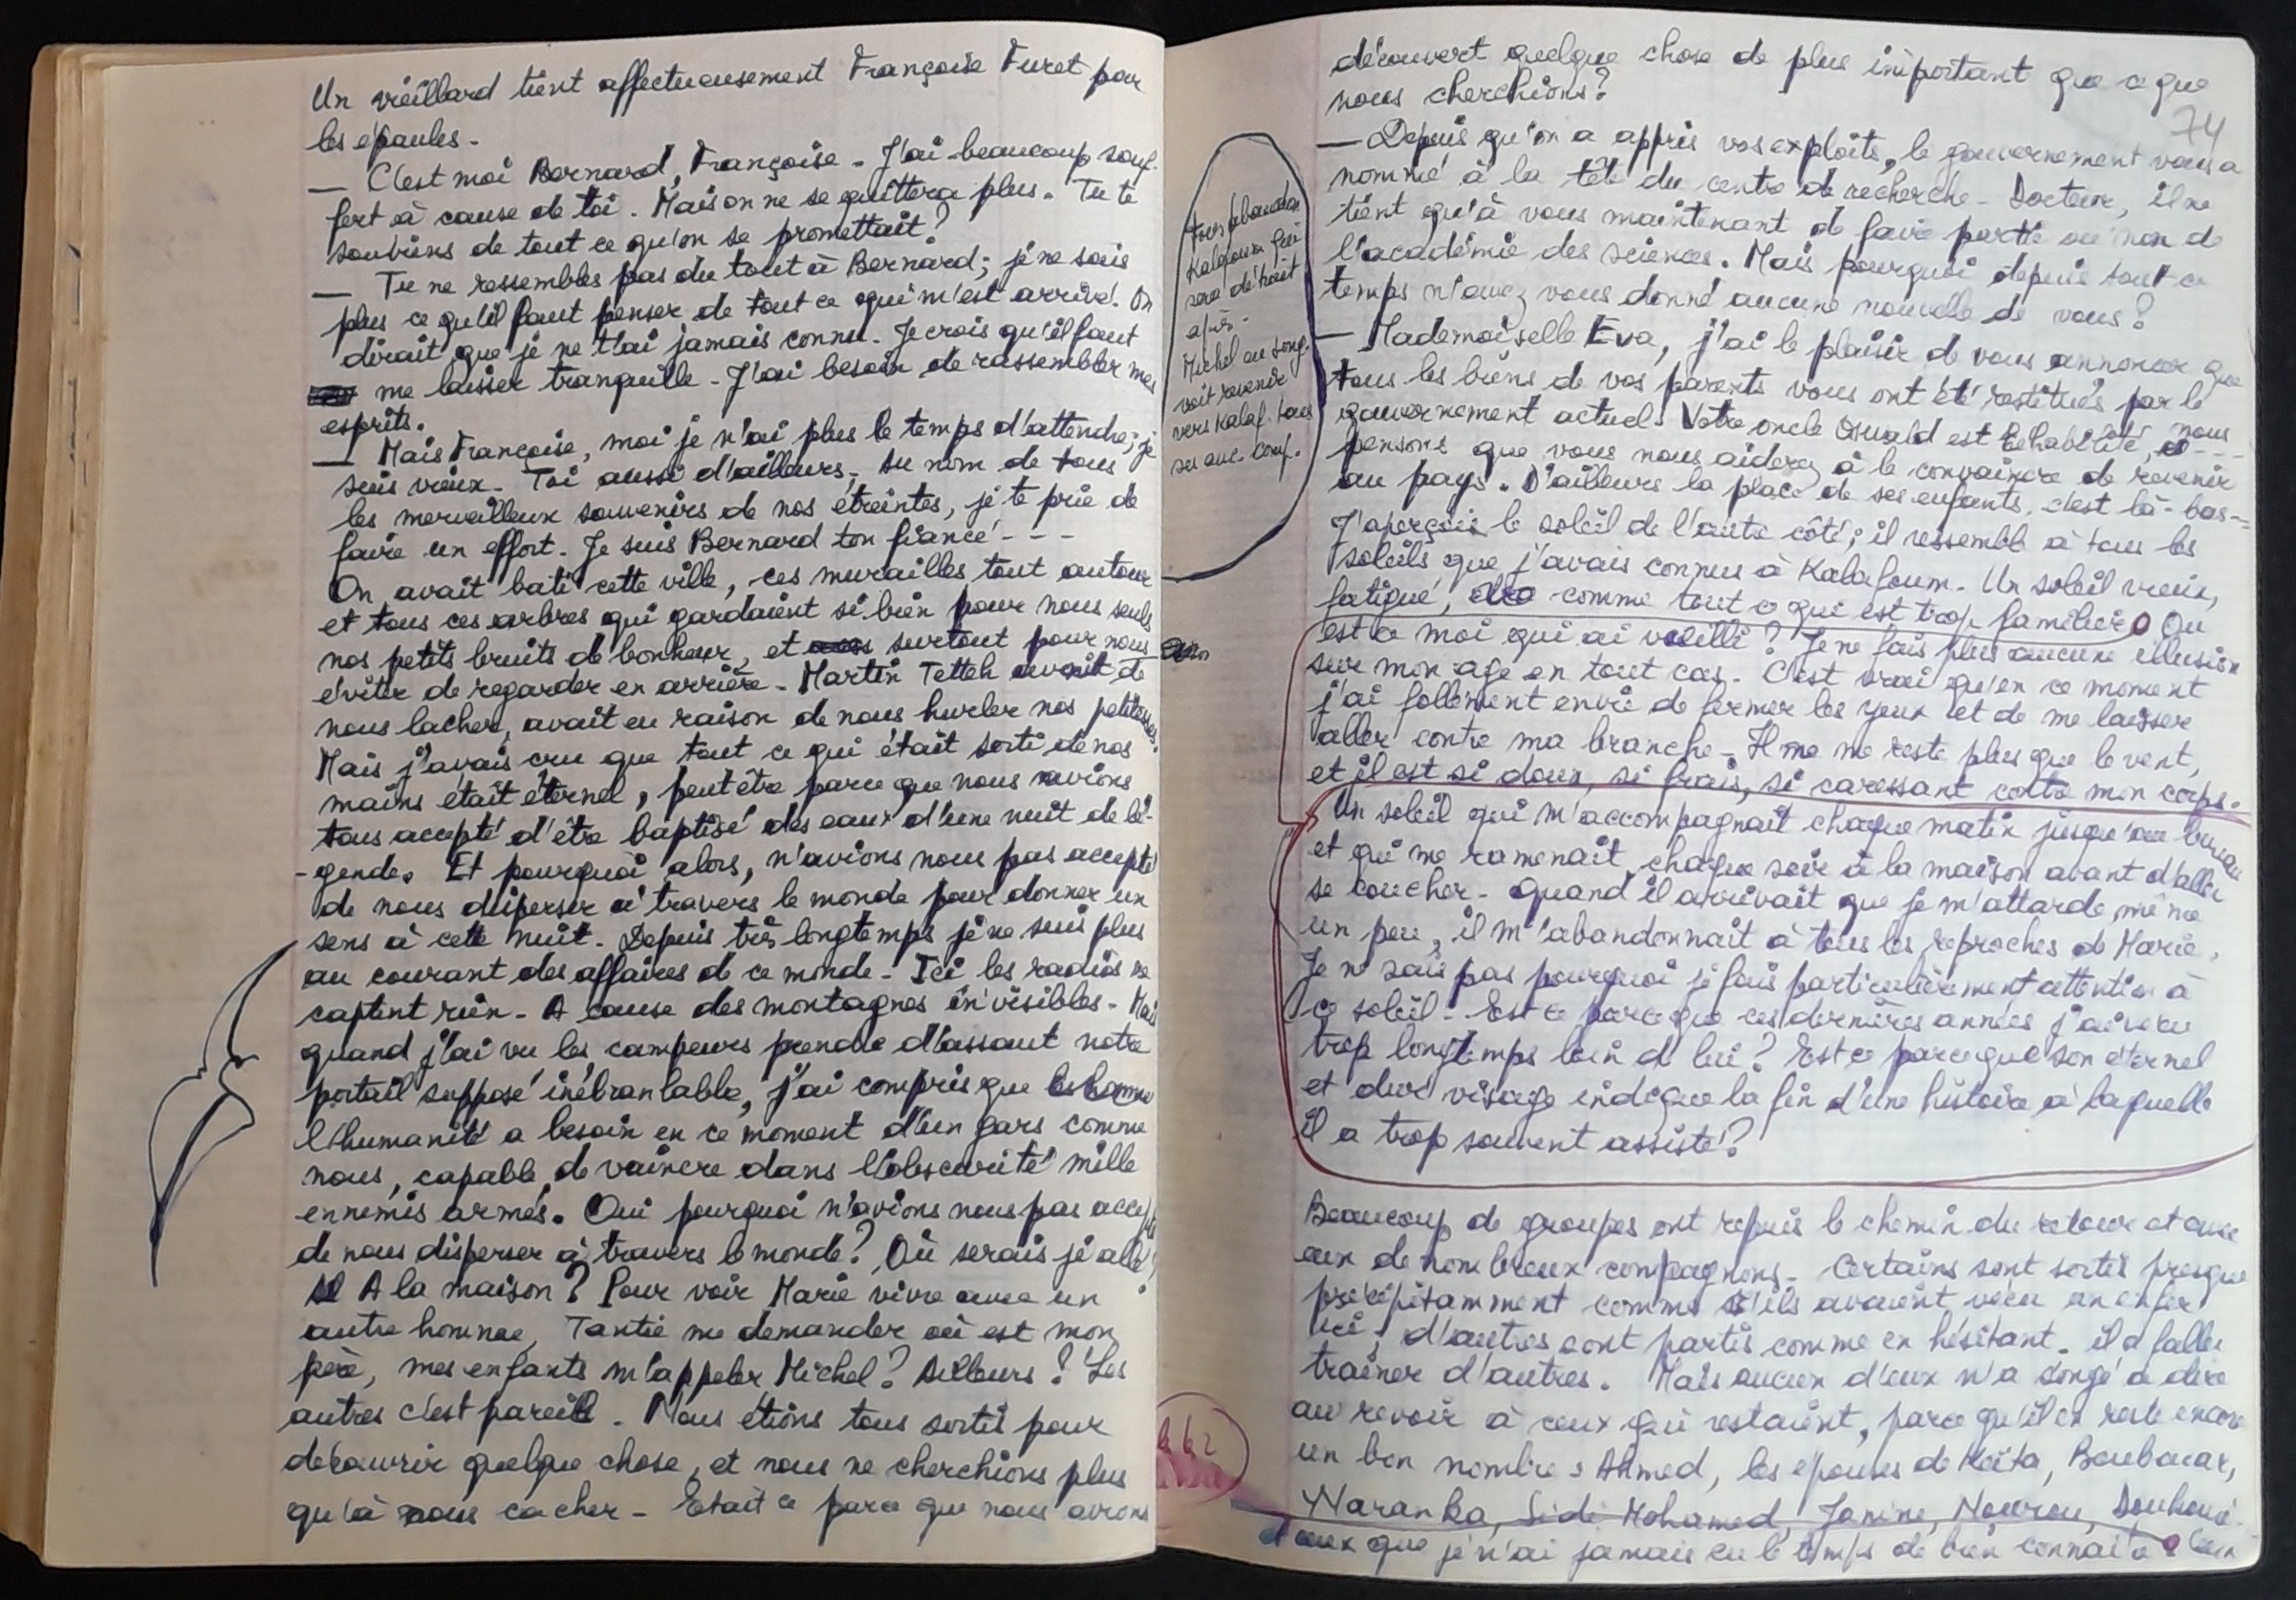 Un vieillard tient affectueusement Françoise Furet par
les épaules -
— C'est moi Bernard, Françoise - J'ai beaucoup souf-
fert à cause de toi. Mais on ne se quittera plus. Tu te
souviens de tout ce qu'on se promettait?
— Tu ne ressembles pas du tout à Bernard; je ne sais
plus ce qu'il faut penser de tout ce qui m'est arrivé. On
dirait que je ne t'ai jamais connu. Je crois qu'il faut
me laisser tranquille - J'ai besoin de rassembler mes
esprits.
— Mais Françoise, moi je n'ai plus le temps d'attendre; je
suis vieux. Toi aussi d'ailleurs, Au nom de tous
les merveilleux souvenirs de nos étreintes, je te prie de
faire un effort. Je suis Bernard ton fiancé - - -
On avait bati cette ville, ces murailles tout autour
et tous ces arbres qui gardaient si bien pour nous seuls
nos petits bruits de bonheur, et surtout pour nous
éviter de regarder en arrière - Martin Tetteh avant de
nous lacher, avait eu raison de nous hurler nos petitesses.
Mais j'avais cru que tout ce qui était sorti de nos
mains était éternel, peut être parce que nous avions
tous accepté d'être baptisé des eaux d'une nuit de lé-
-gende. Et pourquoi alors, n'avions nous pas accepté
de nous disperser à travers le monde pour donner un
sens à cette nuit. Depuis très longtemps je ne suis plus
au courant des affaires de ce monde - Ici les radios ne
captent rien - A cause des montagnes invisibles - Mais
quand j'ai vu les campeurs prendre d'assaut notre
portail supposé inébranlable, j'ai compris que
l'humanité a besoin en ce moment d'un gars comme
nous, capable de vaincre dans l'obscurité mille
ennemis armés. Oui pourquoi n'avions nous pas accepté
de nous disperser à travers le monde? Où serais je allé?
A la maison? Pour voir Marie vivre avec un
autre homme, Tantie me demander où est mon
père, mes enfants m'appeler Michel? Ailleurs? Les
autres c'est pareil. Nous étions tous sortis pour
découvrir quelque chose, et nous ne cherchions plus
qu'à nous cacher - Etait ce parce que nous avions
74
découvert quelque chose de plus important que ce que
nous cherchions?
— Depuis qu'on a appris vos exploits, le gouvernement vous a
nommé à la tête du centre de recherche - Docteur, il ne
tient qu'à vous maintenant de faire partie ou non de
l'académie des sciences. Mais pourquoi depuis tout ce
temps n'avez vous donné aucune nouvelle de vous?
— Mademoiselle Eva, j'ai le plaisir de vous annoncer que
tous les biens de vos parents vous ont été restitués par le
gouvernement actuel. Votre oncle Oswald est réhabilité, nous
pensons que vous nous aiderez à le convaincre de revenir
au pays. D'ailleurs la place de ses enfants, c'est là-bas - -
J'aperçois le soleil de l'autre côté; il ressemble à tous les
soleils que j'avais connus à Kalafoum. Un soleil vieux,
fatigué, comme tout ce qui est trop familier. Ou
est ce moi qui ai vieilli? Je ne fais plus aucune illusion
sur mon age en tout cas. C'est vrai qu'en ce moment
j'ai follement envie de fermer les yeux et de me laisser
aller contre ma branche - Il ne me reste plus que le vent,
et il est si doux, si frais, si caressant contre mon corps.
Un soleil qui m'accompagnait chaque matin jusqu'au bureau
et qui me ramenait chaque soir à la maison avant d'aller
se coucher - Quand il arrivait que je m'attarde même
un peu, il m'abandonnait à tous les reproches de Marie,
Je ne sais pas pourquoi je fais particulièrement attention à
ce soleil - Est ce parce que ces dernières années j'ai vécu
trop longtemps loin de lui? Est ce parce que son éternel
et dur visage indique la fin d'une histoire à laquelle
il a trop souvent assisté?
Beaucoup de groupes ont repris le chemin du retour et avec
eux de nombreux compagnons - Certains sont sortis presque
précipitamment comme s'ils avaient vécu un enfer
ici, d'autres sont partis comme en hésitant. il a fallu
trainer d'autres. Mais aucun d'eux n'a songé à dire
au revoir à ceux qui restaient, parce qu'il en reste encore
un bon nombre: Ahmed, les épouses de Keïta, Boubacar,
Naranka, Sidi Mohamed, Janine, Nourou,
ceux que je n'ai jamais eu le temps de bien connaître.
Kalafoum qui
sera détruit
après -
Michel
voit revenir
vers Kalaf. tous